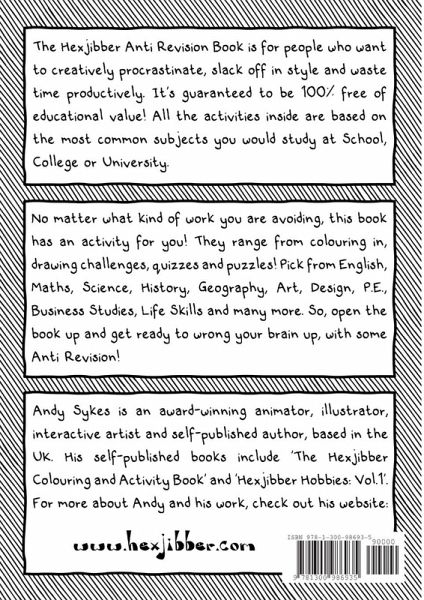 The Hexjibber Anti Revision Book is for people who want
to creatively procrastinate, slack off in style and waste
time productively. It's guaranteed to be 100% free of
educational value! All the activities inside are based on
the most common subjects you would study at School,
College or University.
No matter what kind of work you are avoiding, this book
has an activity for you! They range from colouring in,
drawing challenges, quizzes and puzzles! Pick from English,
Maths, Science, History, Geography, Art, Design, P.E.,
Business Studies, Life Skills and many more. So, open the
book up and get ready to wrong your brain up, with some
Anti Revision!
Andy Sykes is an award-winning animator, illustrator,
interactive artist and self-published author, based in the
UK. His self-published books include 'The Hexjibber
Colouring and Activity Book' and 'Hexjibber Hobbies: Vol.1'.
For more about Andy and his work, check out his website:
www.hexjibber.com
ISBN 978-1-300-98693-5
90000
9 781300 986935